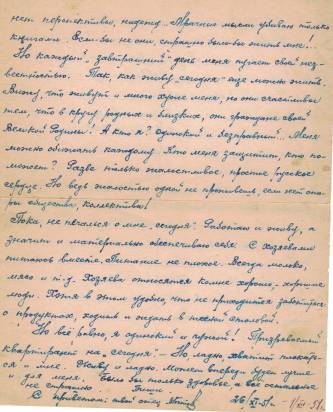 нет перспективы, надежд... Мрачные мысли убиваю только
книгами. Если-бы не они, страшно было-бы жить мне!..
Но каждый "завтрашний" день меня пугает своей неиз-
вестностью. Так, как живу сегодня - еще можно жить.
Вижу, что живут и много хуже меня, но они счастливее
тем, что в кругу родных и близких, они граждане своей
Великой Родины! А кто я? одинокий и бесправный... Меня
можно обижать каждому. Кто меня защитит, кто по-
может? Разве только жалостливое, простое русское
сердце. Но ведь жалостью одной не проживешь, если нет опо-
ры общества, коллектива!
Пока, не печалься о мне, сегодня: Работаю и живу, а
значит и материально обеспечиваю себя. С хозяевами
питаюсь вместе. Питание не плохое. Всегда молоко,
мясо и т.д. Хозяева относятся ко мне хорошо - хорошие
люди. Хотя в этом удобно, что не приходится заботиться
о продуктах, ходить и сидеть в столовой.
Но всё равно, я одинокий и чужой! Призрачный
квартирант на "сегодня". - Но ладно хватит плакать-
ся и мне. Живу и ладно. Может впереди будет лучше
и для меня. Было бы только здоровье, а все остальное
не страшно. Пиши.
С приветом: твой отец
26/XI-51.